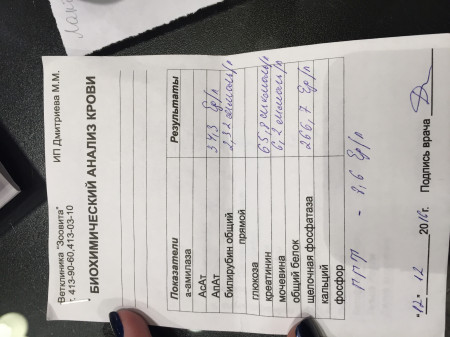 Ветклиника "Зоовита" ИП Дмитриева М.М.
т. 413-90-60,413-03-10
БИОХИМИЧЕСКИЙ АНАЛИЗ КРОВИ
Показатели Результаты
а-амилаза
АсАт
АлАт 34,3 Ед/л
билирубин общий 2,32 мкмоль/л
прямой
глюкоза
креатинин 65,8 мкмоль/л
мочевина 6,2 ммоль/л
общий белок
щелочная фосфатаза 266,7 Ед/л
кальций
фосфор
ГГТ - 3,6 Ед/л
"12" 12 2016г. Подпись врача